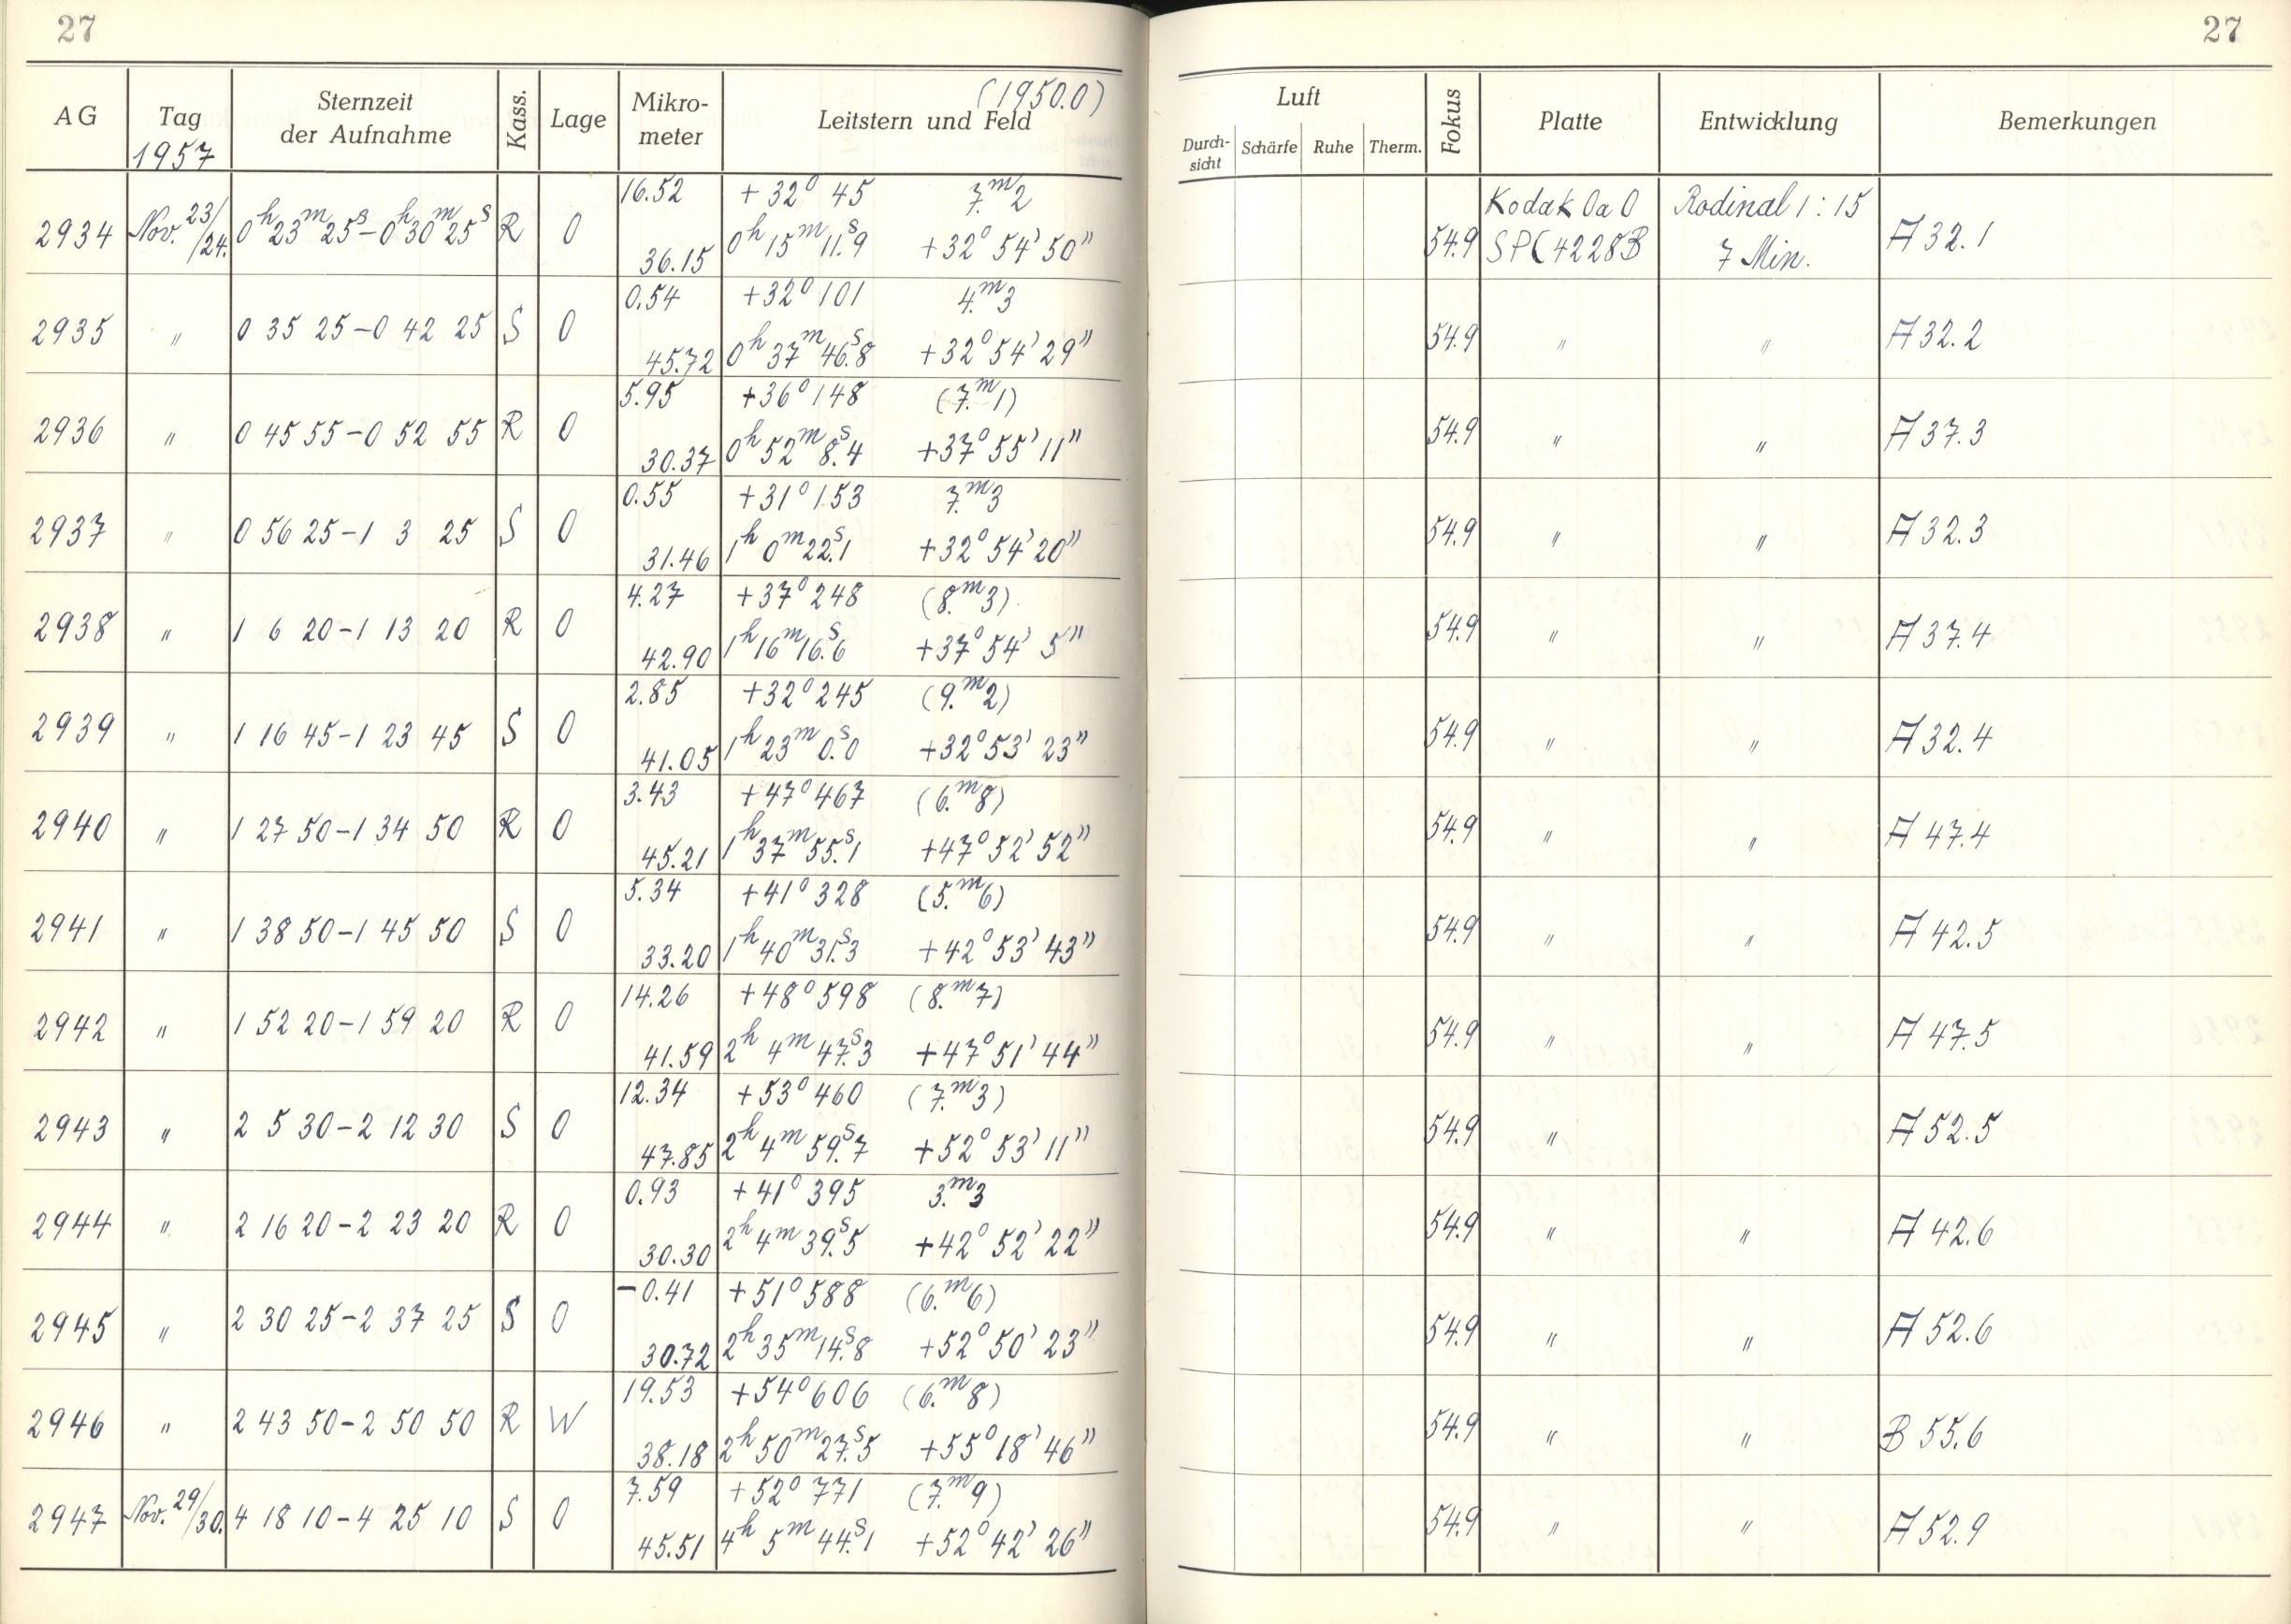 27
27
(1950.0)
AG Tag Sternzeit der Aufnahme Kass. Lage Mikro-meter Leitstern und Feld Luft Fokus Platte Entwicklung Bemerkungen
1957 Durch-sicht Schärfe Ruhe Therm.
16.52 +32° 45 7.ᵐ2 Kodak OaO Rodinal 1:15
2934 Nov. 23/24. 0ʰ23ᵐ25ˢ–0ʰ30ᵐ25ˢ R O 36.15 0ʰ 15ᵐ 11.ˢ9 +32° 54' 50" 54.9 SPC 4228B 7 Min. A 32.1
0.54 +32° 101 4.ᵐ3
2935 " 0 35 25–0 42 25 S O 45.72 0ʰ 37ᵐ 46.ˢ8 +32° 54' 29" 54.9 " " A 32.2
5.95 +36° 148 (7.ᵐ1)
2936 " 0 45 55–0 52 55 R O 30.37 0ʰ 52ᵐ 8.ˢ4 +37° 55' 11" 54.9 " " A 37.3
0.55 +31° 153 7.ᵐ3
2937 " 0 56 25–1 3 25 S O 31.46 1ʰ 0ᵐ 22.ˢ1 +32° 54' 20" 54.9 " " A 32.3
4.27 +37° 248 (8.ᵐ3)
2938 " 1 6 20–1 13 20 R O 42.90 1ʰ 16ᵐ 16.ˢ6 +37° 54' 5" 54.9 " " A 37.4
2.85 +32° 245 (9.ᵐ2)
2939 " 1 16 45–1 23 45 S O 41.05 1ʰ 23ᵐ 0.ˢ0 +32° 53' 23" 54.9 " " A 32.4
3.43 +47° 467 (6.ᵐ8)
2940 " 1 27 50–1 34 50 R O 45.21 1ʰ 37ᵐ 55.ˢ1 +47° 52' 52" 54.9 " " A 47.4
5.34 +41° 328 (5.ᵐ6)
2941 " 1 38 50–1 45 50 S O 33.20 1ʰ 40ᵐ 31.ˢ3 +42° 53' 43" 54.9 " " A 42.5
14.26 +48° 598 (8.ᵐ7)
2942 " 1 52 20–1 59 20 R O 41.59 2ʰ 4ᵐ 47.ˢ3 +47° 51' 44" 54.9 " " A 47.5
12.34 +53° 460 (7.ᵐ3)
2943 " 2 5 30–2 12 30 S O 47.85 2ʰ 4ᵐ 59.ˢ7 +52° 53' 11" 54.9 " A 52.5
0.93 +41° 395 3.ᵐ3
2944 " 2 16 20–2 23 20 R O 30.30 2ʰ 4ᵐ 39.ˢ5 +42° 52' 22" 54.9 " " A 42.6
-0.41 +51° 588 (6.ᵐ6)
2945 " 2 30 25–2 37 25 S O 30.72 2ʰ 35ᵐ 14.ˢ8 +52° 50' 23" 54.9 " " A 52.6
19.53 +54° 606 (6.ᵐ8)
2946 " 2 43 50–2 50 50 R W 38.18 2ʰ 50ᵐ 27.ˢ5 +55° 18' 46" 54.9 " " B 55.6
7.59 +52° 771 (7.ᵐ9)
2947 Nov. 29/30. 4 18 10–4 25 10 S O 45.51 4ʰ 5ᵐ 44.ˢ1 +52° 42' 26" 54.9 " " A 52.9